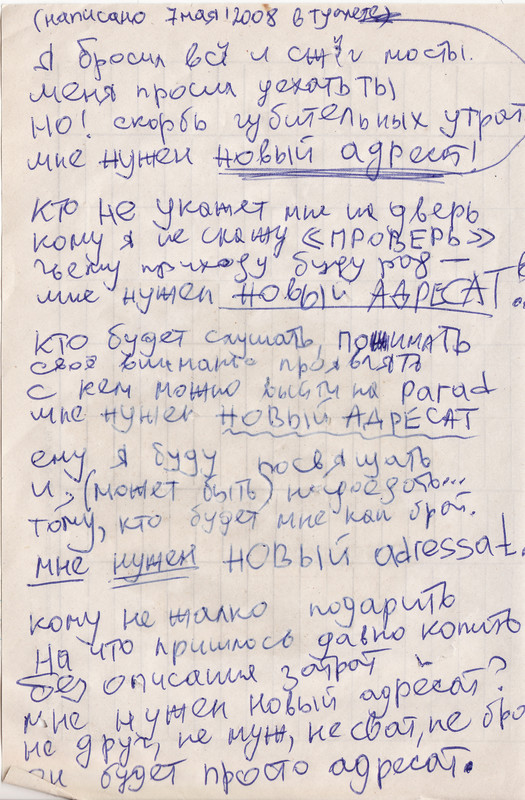 (написано 7 мая 2008 в туалете)
Я бросил всё и сжёг мосты.
меня просил уехать ты
но! скорбь губительных утрат
мне нужен новый адресат!
кто не укажет мне на дверь
кому я не скажу «ПРОВЕРЬ»
чьему приходу буду рад —
мне нужен НОВЫЙ АДРЕСАТ
кто будет слушать, понимать
своё внимание проявлять
с кем можно выйти на parad
мне нужен НОВЫЙ АДРЕСАТ
ему я буду посвящать
и, (может быть) надоедать...
тому, кто будет мне как брат.
мне нужен НОВЫЙ adressat.
кому не жалко подарить
на что пришлось давно копить
без описания затрат
мне нужен новый адресат?
не друг, не муж, не сват, не бра
он будет просто адресат.